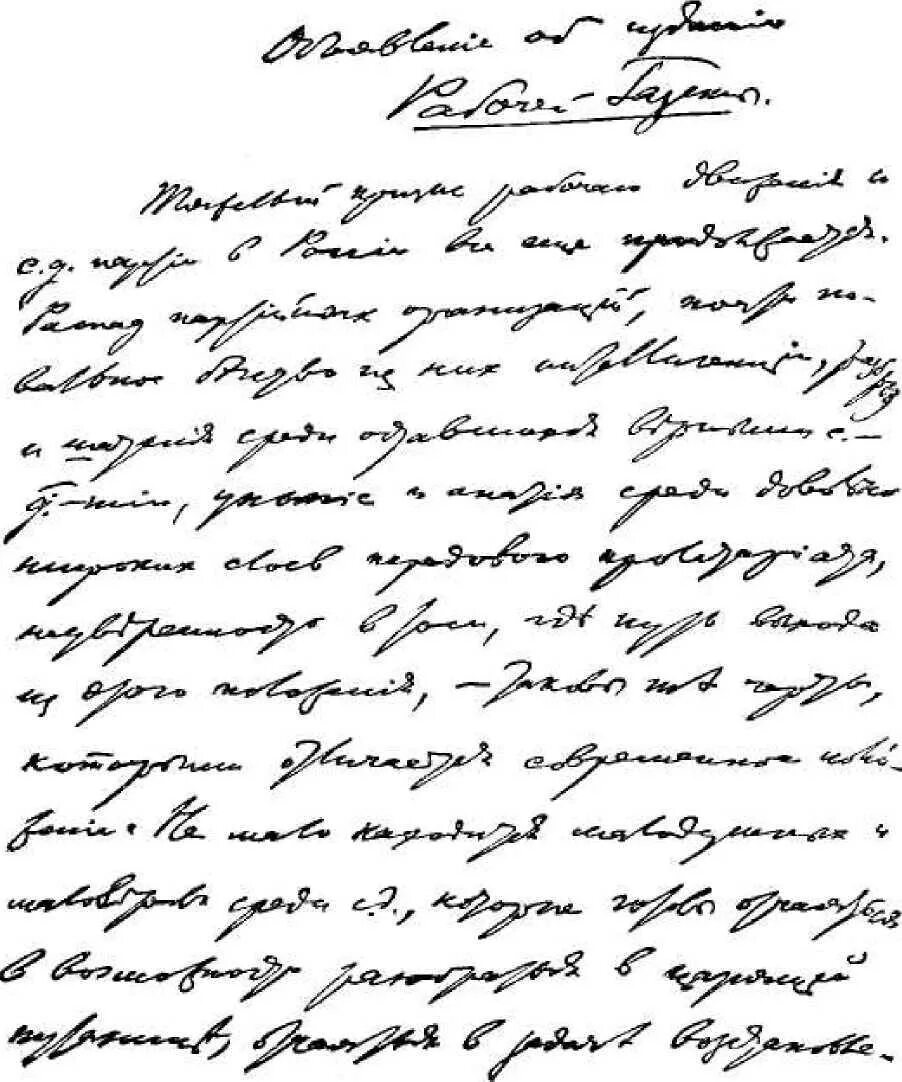 Объявленіе об изданіи
Рабочей Газеты.
Тяжелый кризис рабочаго движенія и
с.д. партіи в Россіи все еще продолжается.
Распад партійных организацій, почти по-
вальное бѣгство из них интеллигенціи, разброд
и шатанія среди оставшихся вѣрными с.-
д.-тіи, уныніе и апатія среди довольно
широких слоев передового пролетаріата,
неувѣренность в том, гдѣ путь выхода
из этого положенія, – таковы тѣ черты,
которыми отличается современное поло-
женіе. Не мало находится малодушных и
маловѣров среди с.д., которые готовы отчаяться
в возможности разобраться в царящей
путаницѣ, отчаяться в задачѣ возстановле-